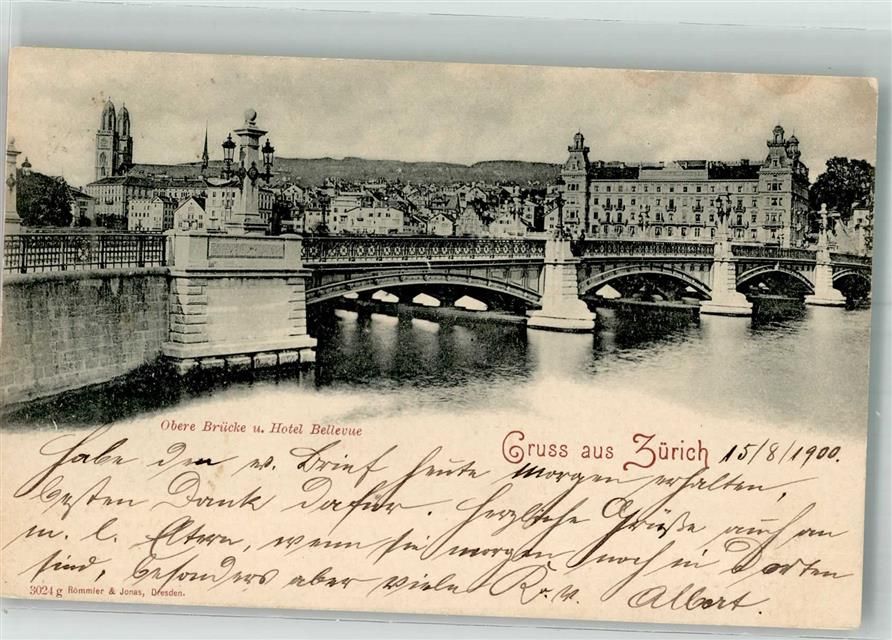 Obere Brücke u. Hotel Bellevue
Gruss aus Zürich 15/8/1900.
Habe den w. Brief heute morgen erhalten,
besten Dank dafür. Herzliche Grüße auch an
m. l. Eltern, wenn sie morgen noch in Dorten
sind, besonders aber viele K. v. Albert.
3024 g Römmler & Jonas, Dresden.